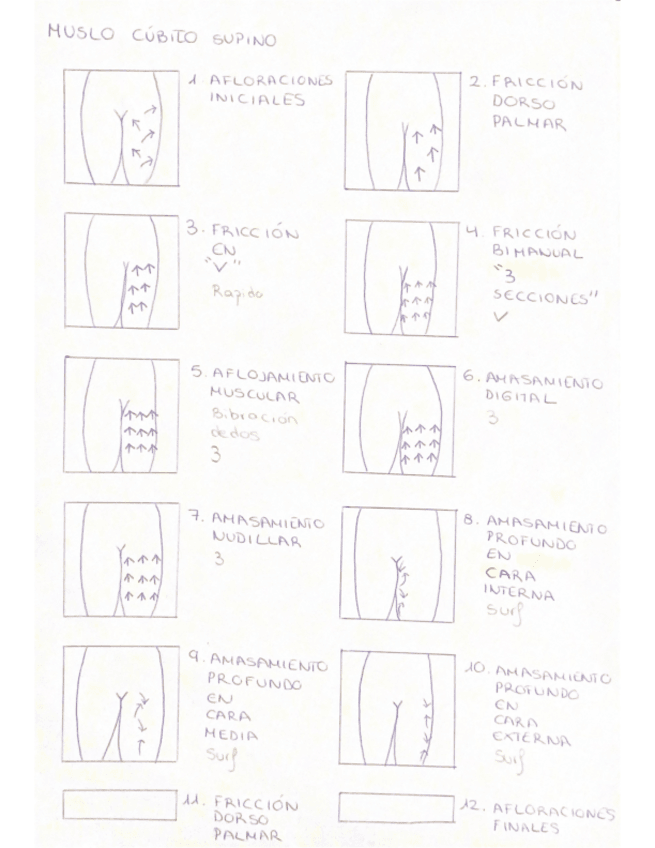 MUSLO CÚBITO SUPINO
1. AFLORACIONES
INICIALES
2. FRICCIÓN
DORSO
PALMAR
3. FRICCIÓN
EN
"V"
Rapido
4. FRICCIÓN
BIMANUAL
"3
SECCIONES"
✓
5. AFLOJAMIENTO
MUSCULAR
Bibración
dedos
3
6. AMASAMIENTO
DIGITAL
3
7. AMASAMIENTO
NUDILLAR
3
8. AMASAMIENTO
PROFUNDO
EN
CARA
INTERNA
Surf
9. AMASAMIENTO
PROFUNDO
EN
CARA
MEDIA
Surf
10. AMASAMIENTO
PROFUNDO
EN
CARA
EXTERNA
Surf
11. FRICCIÓN
DORSO
PALMAR
12. AFLORACIONES
FINALES